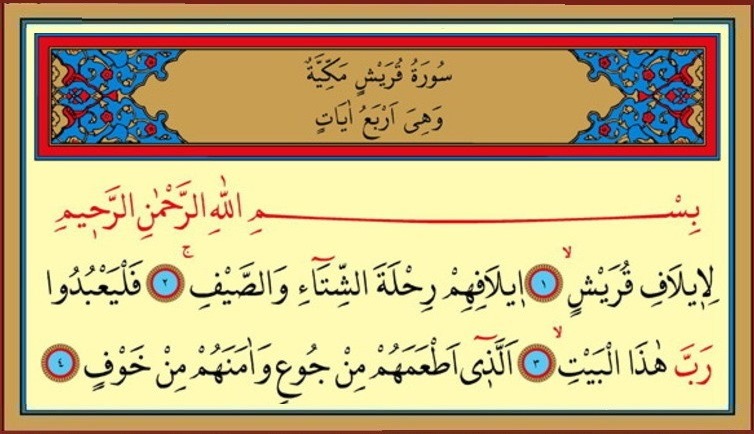 سُورَةُ قُرَيْشٍ مَكِّيَّةٌ
وَهِىَ اَرْبَعُ اٰيَاتٍ
بِسْــــــــــــــــــمِ اللّٰهِ الرَّحْمٰنِ الرَّح۪يمِ
لِا۪يلَافِ قُرَيْشٍۙ ﴿١﴾ ا۪يلَافِهِمْ رِحْلَةَ الشِّتَٓاءِ وَالصَّيْفِۚ ﴿٢﴾ فَلْيَعْبُدُوا
رَبَّ هٰذَا الْبَيْتِۙ ﴿٣﴾ اَلَّذ۪ٓى اَطْعَمَهُمْ مِنْ جُوعٍ وَاٰمَنَهُمْ مِنْ خَوْفٍ ﴿٤﴾